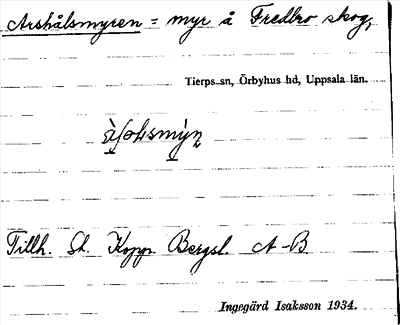 Arshålsmyren = myr å Fredbro skog,
Tierps sn, Örbyhus hd, Uppsala län.
Tillh. St. Kopp. Bergsl. A-B
Ingegärd Isaksson 1934.